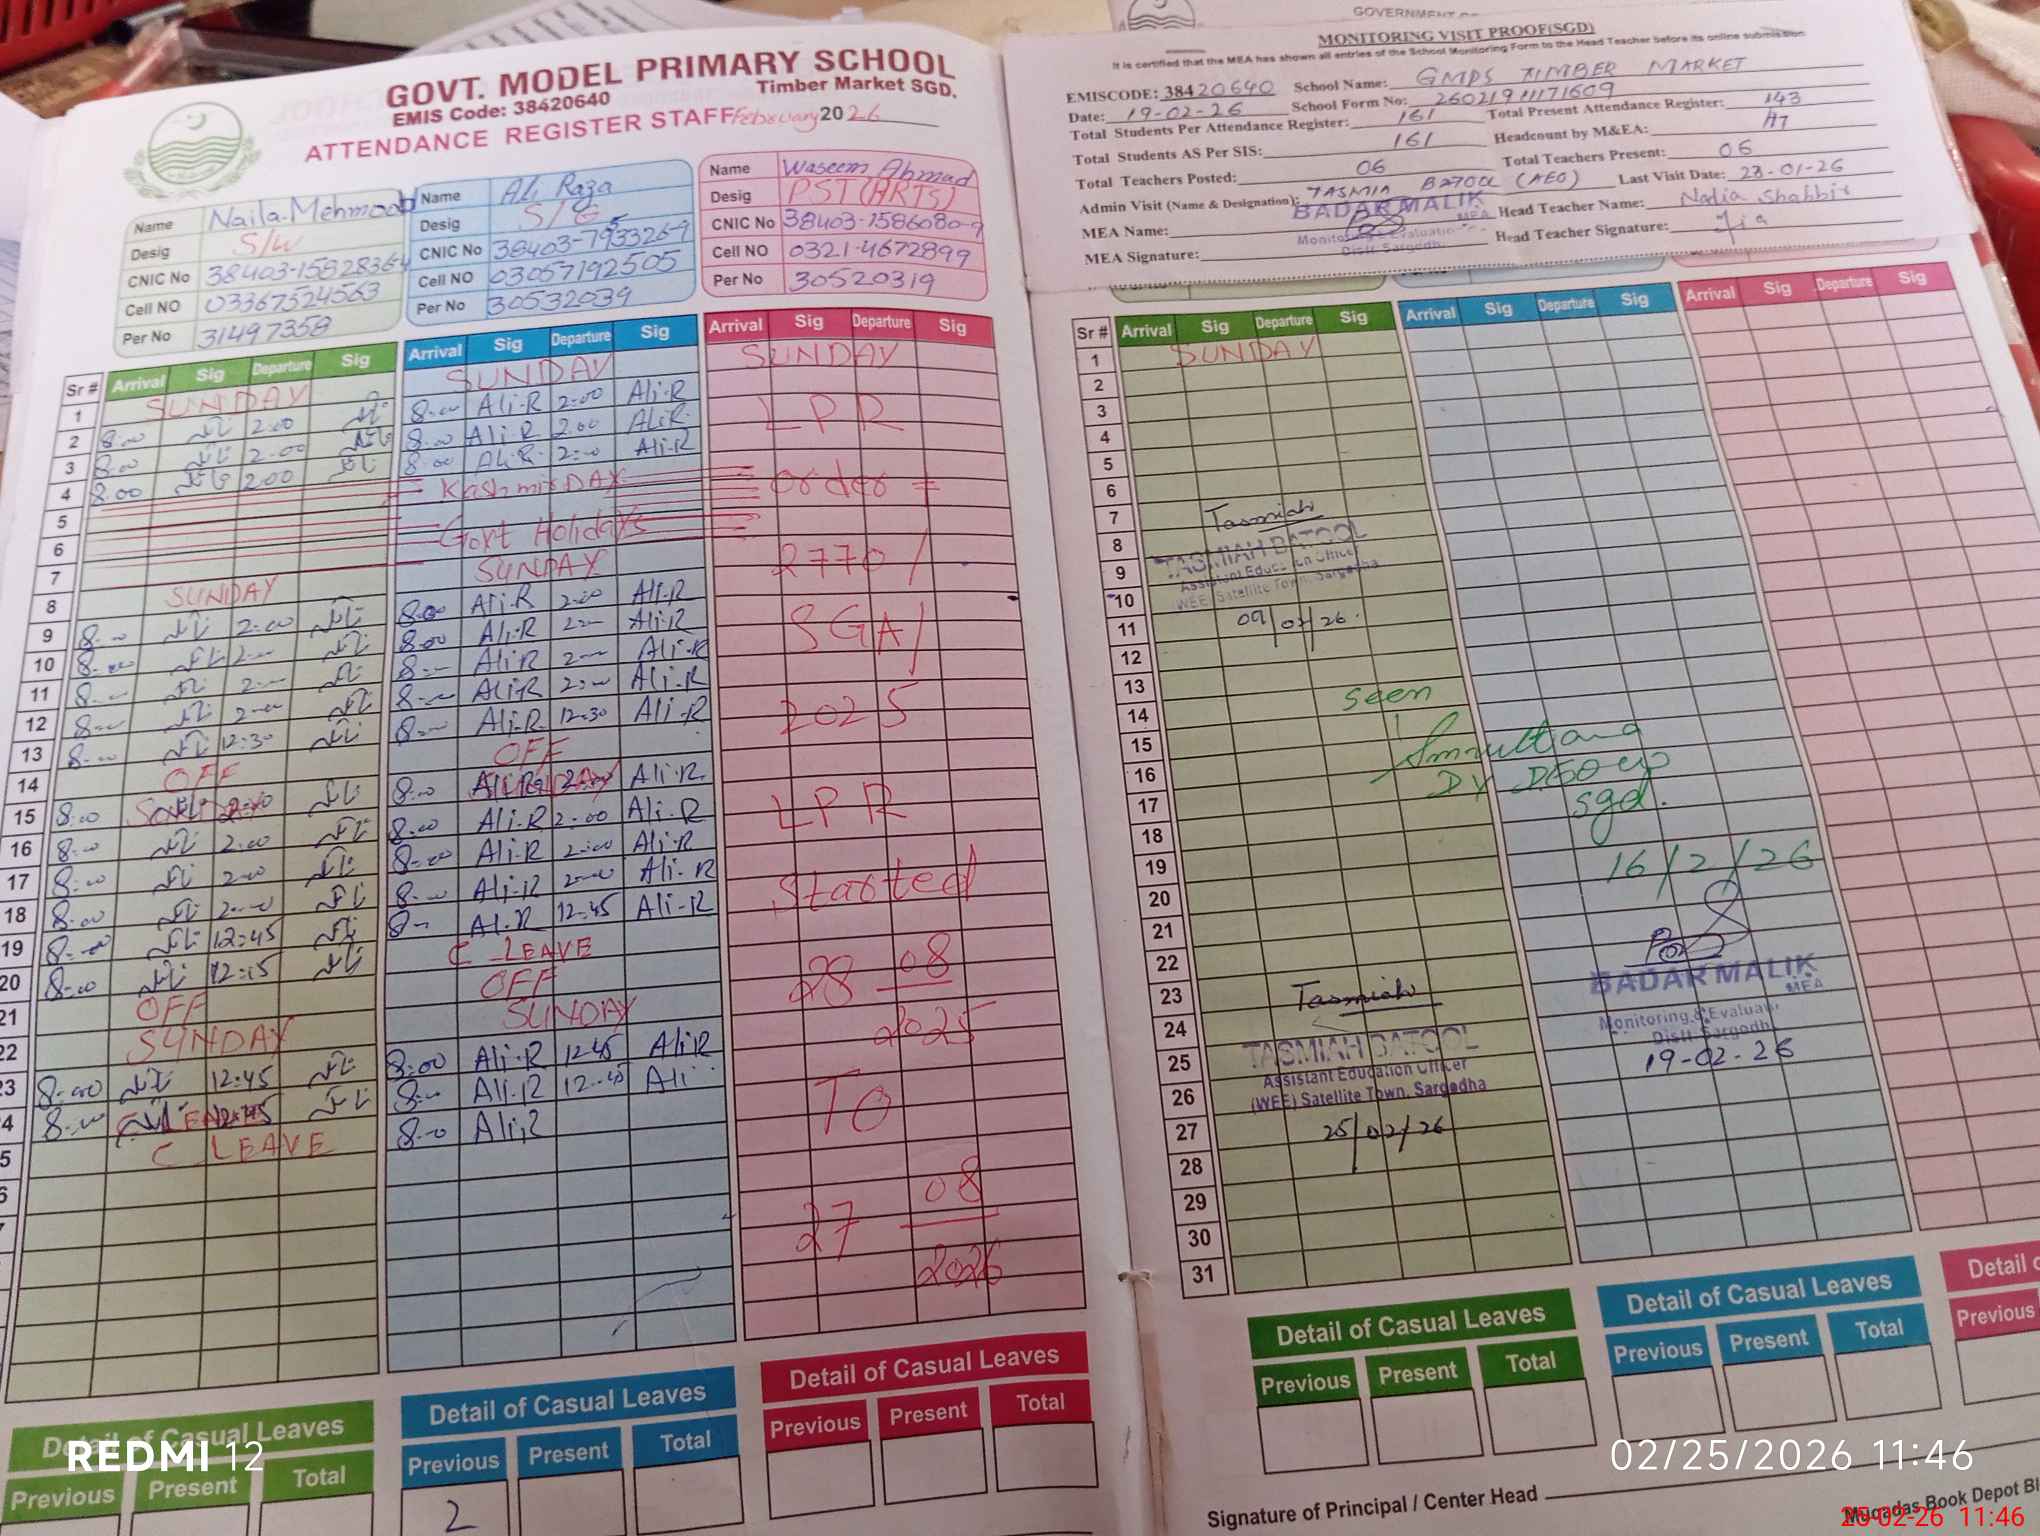 GOVT. MODEL PRIMARY SCHOOL
EMIS Code: 38420640
Timber Market SGD.
ATTENDANCE REGISTER STAFF February 2026
Name Naila Mehmood
Desig S/W
CNIC No
Cell NO 03367524563
Per No 31497358
Name Ali Raza
Desig
CNIC No
Cell NO 03057192505
Per No 30532039
Name Waseem Ahmad
Desig PST (ARTS)
CNIC No 38403-1586080-9
Cell NO 0321-4672899
Per No 30520319
Sr # Arrival Sig Departure Sig
1 SUNDAY
2 8:00 2:00
3 8:00 2:00
4 8:00 2:00
5
6
7
8 SUNDAY
9 8:00 2:00
10 8:00 2:00
11 8:00 2:00
12 8:00 2:00
13 8:00 12:30
14 OFF
15 8:00 SUNDAY
16 8:00 2:00
17 8:00 2:00
18 8:00 2:00
19 8:00 12:45
20 8:00 12:15
21 OFF
22 SUNDAY
23 8:00 12:45
24 8:00
25 C LEAVE
Arrival Sig Departure Sig
SUNDAY
8:00 Ali-R 2:00 Ali-R
8:00 Ali-R 2:00 Ali-R
8:00 Ali-R 2:00 Ali-R
Kashmir DAY
Govt Holidays
SUNDAY
8:00 Ali-R 2:00 Ali-R
8:00 Ali-R 2:00 Ali-R
8:00 Ali-R 2:00 Ali-R
8:00 Ali-R 2:00 Ali-R
8:00 Ali-R 12:30 Ali-R
OFF
8:00 Ali-R 2:00 Ali-R
8:00 Ali-R 2:00 Ali-R
8:00 Ali-R 2:00 Ali-R
8:00 Ali-R 2:00 Ali-R
8:00 Ali-R 12:45 Ali-R
C LEAVE
OFF
SUNDAY
8:00 Ali-R 12:45 Ali-R
8:00 Ali-R 12:45 Ali
8:00 Ali-R
Arrival Sig Departure Sig
SUNDAY
LPR
order =
2770/
SGA/
2025
LPR
Started
28 08
2025
TO
27 08
2026
Detail of Casual Leaves
Previous Present Total
Detail of Casual Leaves
Previous Present Total
2
Detail of Casual Leaves
Previous Present Total
MONITORING VISIT PROOF(SGD)
It is certified that the MEA has shown all entries of the School Monitoring Form to the Head Teacher before its online submission
EMISCODE: 38420640 School Name: GMPS TIMBER MARKET
Date: 19-02-26 School Form No:
Total Students Per Attendance Register: 161 Total Present Attendance Register: 143
Total Students AS Per SIS: 161 Headcount by M&EA:
Total Teachers Posted: 06 Total Teachers Present: 06
Admin Visit (Name & Designation): TASMIA BATOOL (AEO) Last Visit Date: 23-01-26
MEA Name: BADAR MALIK MEA Head Teacher Name: Nadia Shabbir
MEA Signature: Head Teacher Signature:
Sr # Arrival Sig Departure Sig Arrival Sig Departure Sig Arrival Sig Departure Sig
1 SUNDAY
2
3
4
5
6
7
8
9
10
11
12
13
14
15
16
17
18
19
20
21
22
23
24
25
26
27
28
29
30
31
Tasmiah
TASMIAH BATOOL
Assistant Education Officer
(WEE) Satellite Town, Sargodha
09/02/26
seen
sgd.
16/2/26
BADAR MALIK
MEA
Monitoring & Evaluation
Distt Sargodha
19-02-26
Tasmiah
TASMIAH BATOOL
Assistant Education Officer
(WEE) Satellite Town, Sargodha
25/02/26
Detail of Casual Leaves
Previous Present Total
Detail of Casual Leaves
Previous Present Total
Detail
Previous
Signature of Principal / Center Head
Muqadas Book Depot
REDMI 12
02/25/2026 11:46
25-02-26 11:46